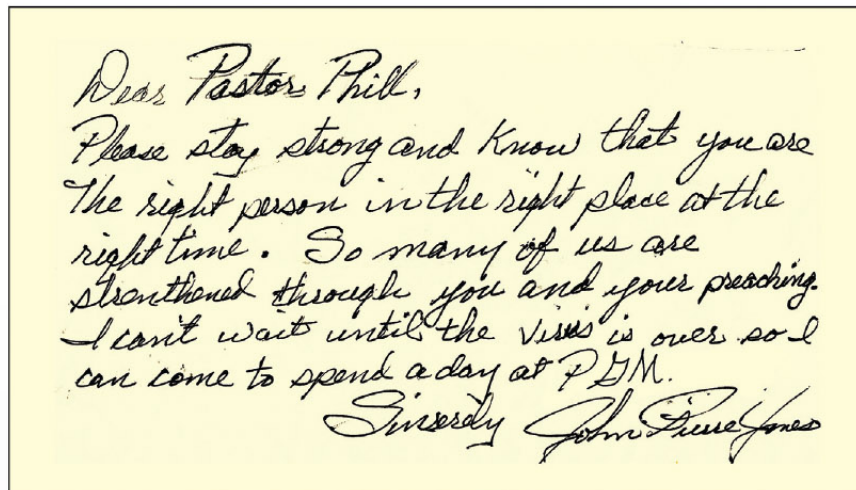 Dear Pastor Phill,
Please stay strong and know that you are
the right person in the right place at the
right time. So many of us are
strenthened through you and your preaching.
I can't wait until the virus is over so I
can come to spend a day at PGM.
Sincerely John Pierre Jones